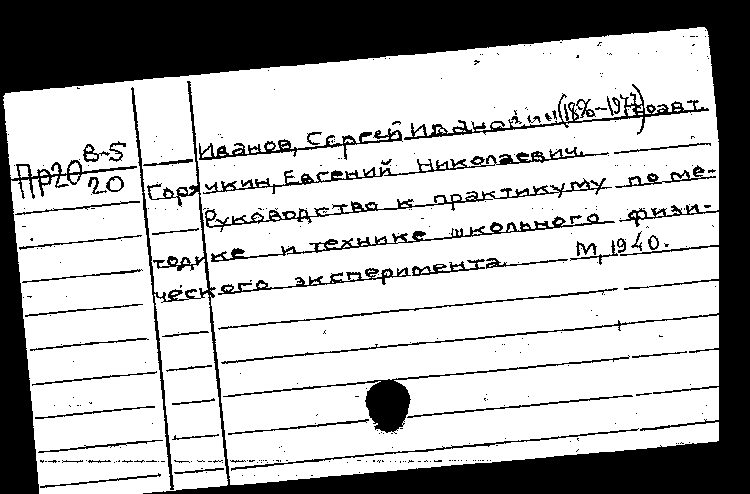 Пр20 В-5
20
Иванов, Сергей Иванович (1896-1977) соавт.
Горячкин, Евгений Николаевич.
Руководство к практикуму по ме-
тодике и технике школьного физи-
ческого эксперимента. М, 1940.